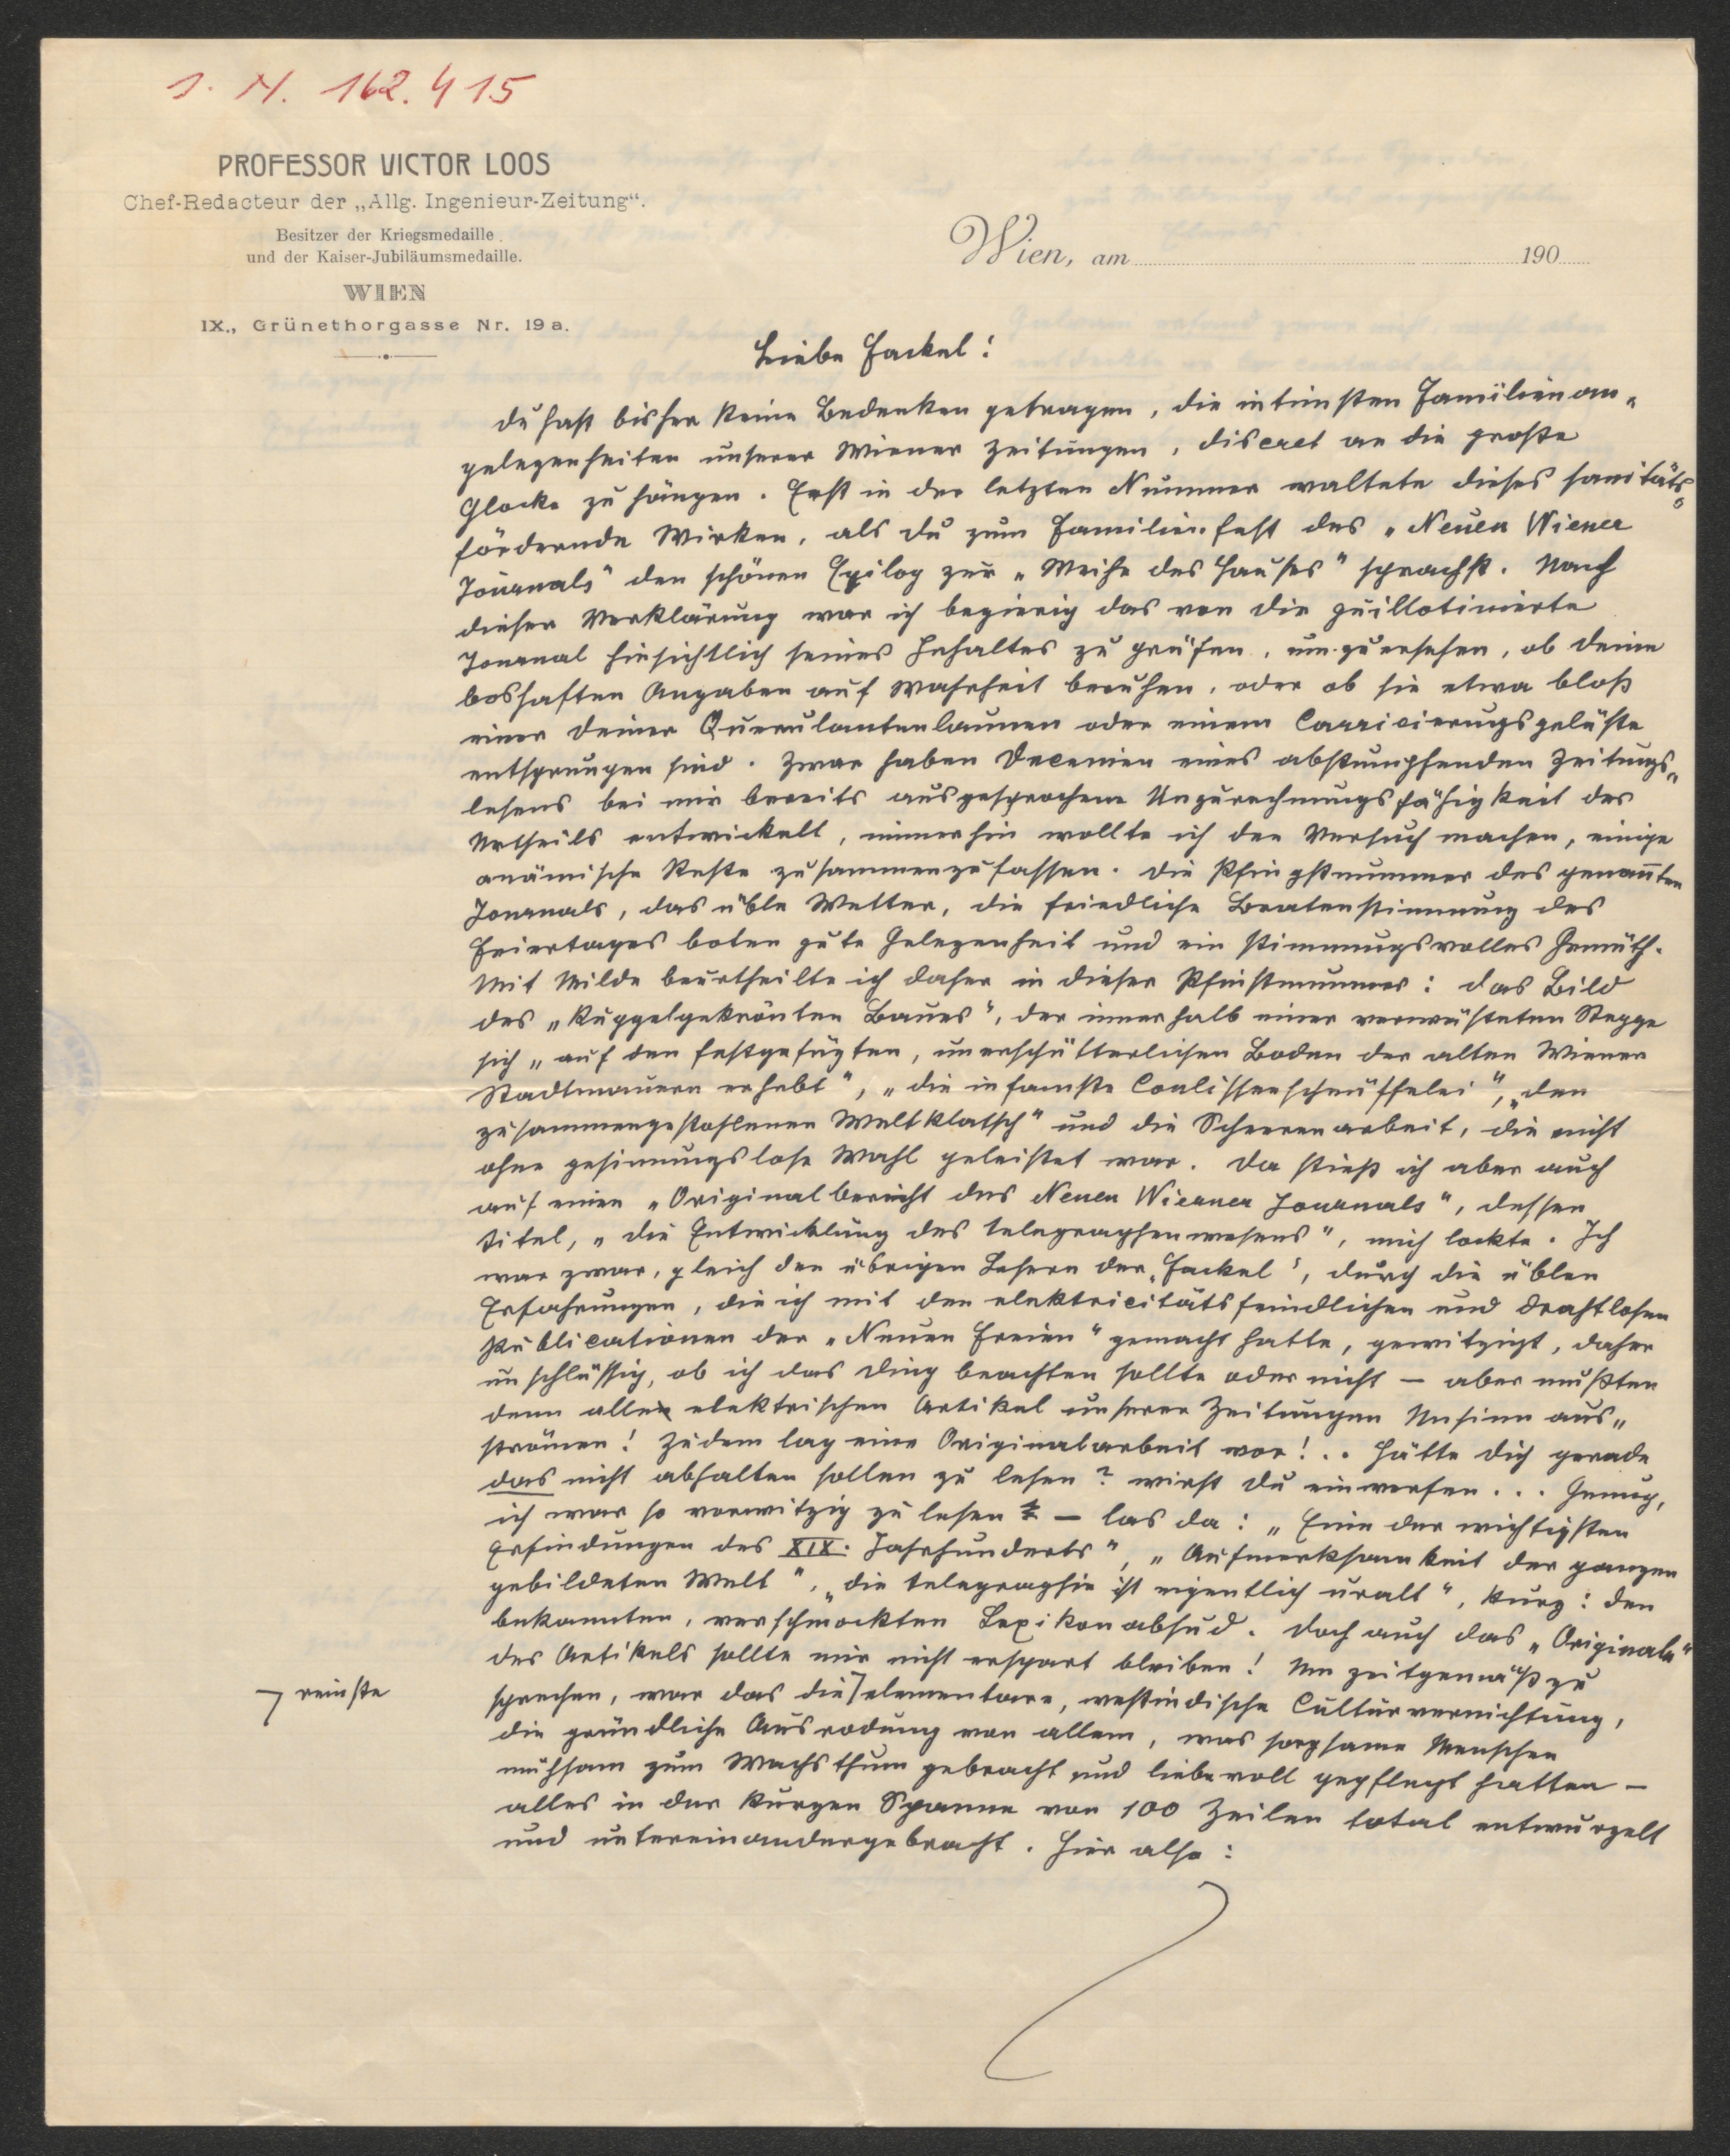 I. N. 162.415
PROFESSOR VICTOR LOOS
Chef-Redacteur der „Allg. Ingenieur-Zeitung“.
Besitzer der Kriegsmedaille
und der Kaiser-Jubiläumsmedaille.
WIEN
IX., Grünethorgasse Nr. 19a.
Wien, am 190
Liebe Fackel!
Du hast bisher keine Bedenken getragen, die intimsten Familienan„
gelegenheiten unserer Wiener Zeitungen, discret an die große
Glocke zu hängen. Erst in der letzten Nummer waltete dieses sanitäts„
fördernde Wirken, als du zum Familienfest des „Neuen Wiener
Journals“ den schönen Epilog zur „Weihe des Hauses“ sprachst. Nach
dieser Verklärung war ich begierig das von dir guillotinierte
Journal hinsichtlich seines Inhaltes zu prüfen, um zu ersehen, ob deine
boshaften Angaben auf Wahrheit beruhen, oder ob sie etwa bloß
einer deiner Querulantenlaunen oder einem Carricierungsgelüste
entsprungen sind. Zwar haben Decenien eines abstumpfenden Zeitungs„
lesens bei mir bereits ausgesprochene Unzurechnungsfähigkeit des
Urtheils entwickelt, immerhin wollte ich den Versuch machen, einige
anämische Reste zusammenzufassen. Die Pfingstnummer des genannten
Journals, das üble Wetter, die friedliche Bratenstimmung des
Feiertages boten gute Gelegenheit und ein stimmungsvolles Gemüth.
Mit Milde beurtheilte ich daher in dieser Pfinstnummer: das Bild
des „kuppelgekrönten Baues“, der innerhalb einer verwüsteten Steppe
sich „auf den festgefügten, unerschütterlichen Boden der alten Wiener
Stadtmauern erhebt“, „die infamste Coulissenschnüffelei“, „den
zusammengestohlenen Weltklatsch“ und die Scheerenarbeit, die nicht
ohne gesinnungslose Wahl geleistet war. Da stieß ich aber auch
auf einen „Originalbericht des Neuen Wiener Journals“, dessen
Titel, „die Entwicklung des Telegraphenwesens“, mich lockte. Ich
war zwar, gleich den übrigen Lesern der „Fackel“, durch die üblen
Erfahrungen, die ich mit den elektricitätsfeindlichen und drahtlosen
Publicationen der „Neuen Freien“ gemacht hatte, gewitzigt, daher
unschlüssig, ob ich das Ding beachten sollte oder nicht – aber mußten
denn alle elektrischen Artikel unserer Zeitungen Unsinn aus„
strömen! Zudem lag eine Originalarbeit vor! .. Hätte dich gerade
das nicht abhalten sollen zu lesen? wirst du einwerfen . . . Genug,
ich war so vorwitzig zu lesen – las da: „Eine der wichtigsten
Erfindungen des XIX. Jahrhunderts“, „Aufmerksamkeit der ganzen
gebildeten Welt“, „die Telegraphie ist eigentlich uralt“, kurz: den
bekannten, verschmockten Lexikonabsud. Doch auch das „Originale“
des Artikels sollte mir nicht erspart bleiben! Um zeitgemäß zu
sprechen, war das die elementare, westindische Culturvernichtung,
reinste
die gründliche Ausrodung von allem, was sorgsame Menschen
mühsam zum Wachsthum gebracht und liebevoll gepflegt hatten –
alles in der kurzen Spanne von 100 Zeilen total entwurzelt
und untereinandergebracht. Hier also: